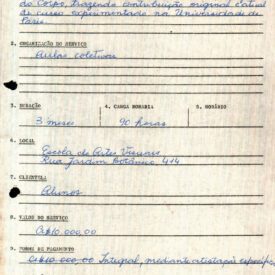 do Corpo, trazendo contribuição original e atual
de curso experimentado na Universidade de
Paris.
2. ORGANIZAÇÃO DO SERVIÇO
Aulas coletivas
3. DURAÇÃO 4. CARGA HORARIA 5. HORÁRIO
3 meses 90 horas
6. LOCAL
Escola de Artes Visuais
Rua Jardim Botânico, 414
7. CLIENTELA
Alunos
8. VALOR DO SERVIÇO
Cr$10.000,00
9. FORMA DE PAGAMENTO
Cr$10.000,00 Integral, mediante atestação específica